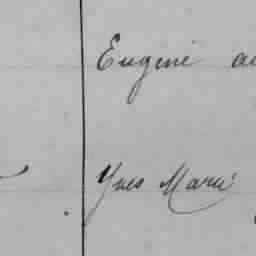 Eugène
Yves Marie